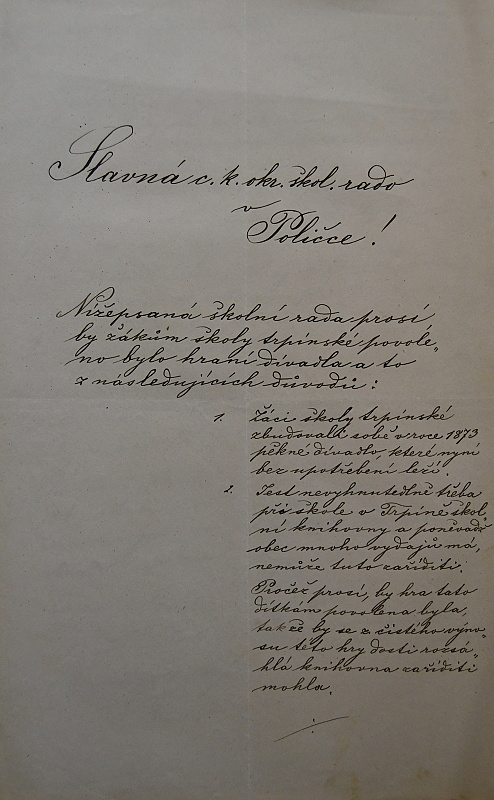 Slavná c. k. okr. škol. rado
v
Poličce!
Nížepsaná školní rada prosí
by žákům školy trpínské povole„
no bylo hraní divadla a to
z následujících důvodů:
1. Žáci školy trpínské
zbudovali sobě v roce 1873
pěkné divadlo, které nyní
bez upotřebení leží.
2. Jest nevyhnutedlně třeba
při škole v Trpíně škol„
ní knihovny a poněvadž
obec mnoho vydajů má,
nemůže tuto zaříditi.
Pročež prosí, by hra tato
dítkám povolena byla,
takže by se z čistého výno„
su této hry dosti rozsá„
hlá knihovna zaříditi
mohla.